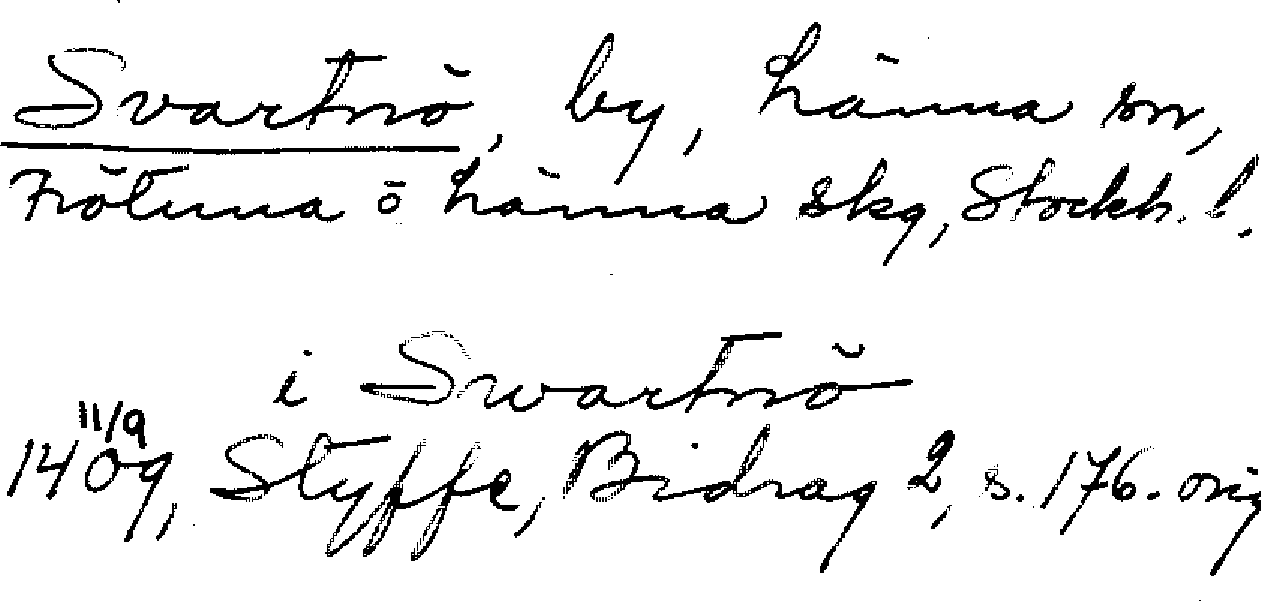 Svartnö, by, Länna sn,
Frötuna o Länna skg, Stockh. l.
i Swartnö
11/9
1409, Styffe, Bidrag 2, s. 176. orig